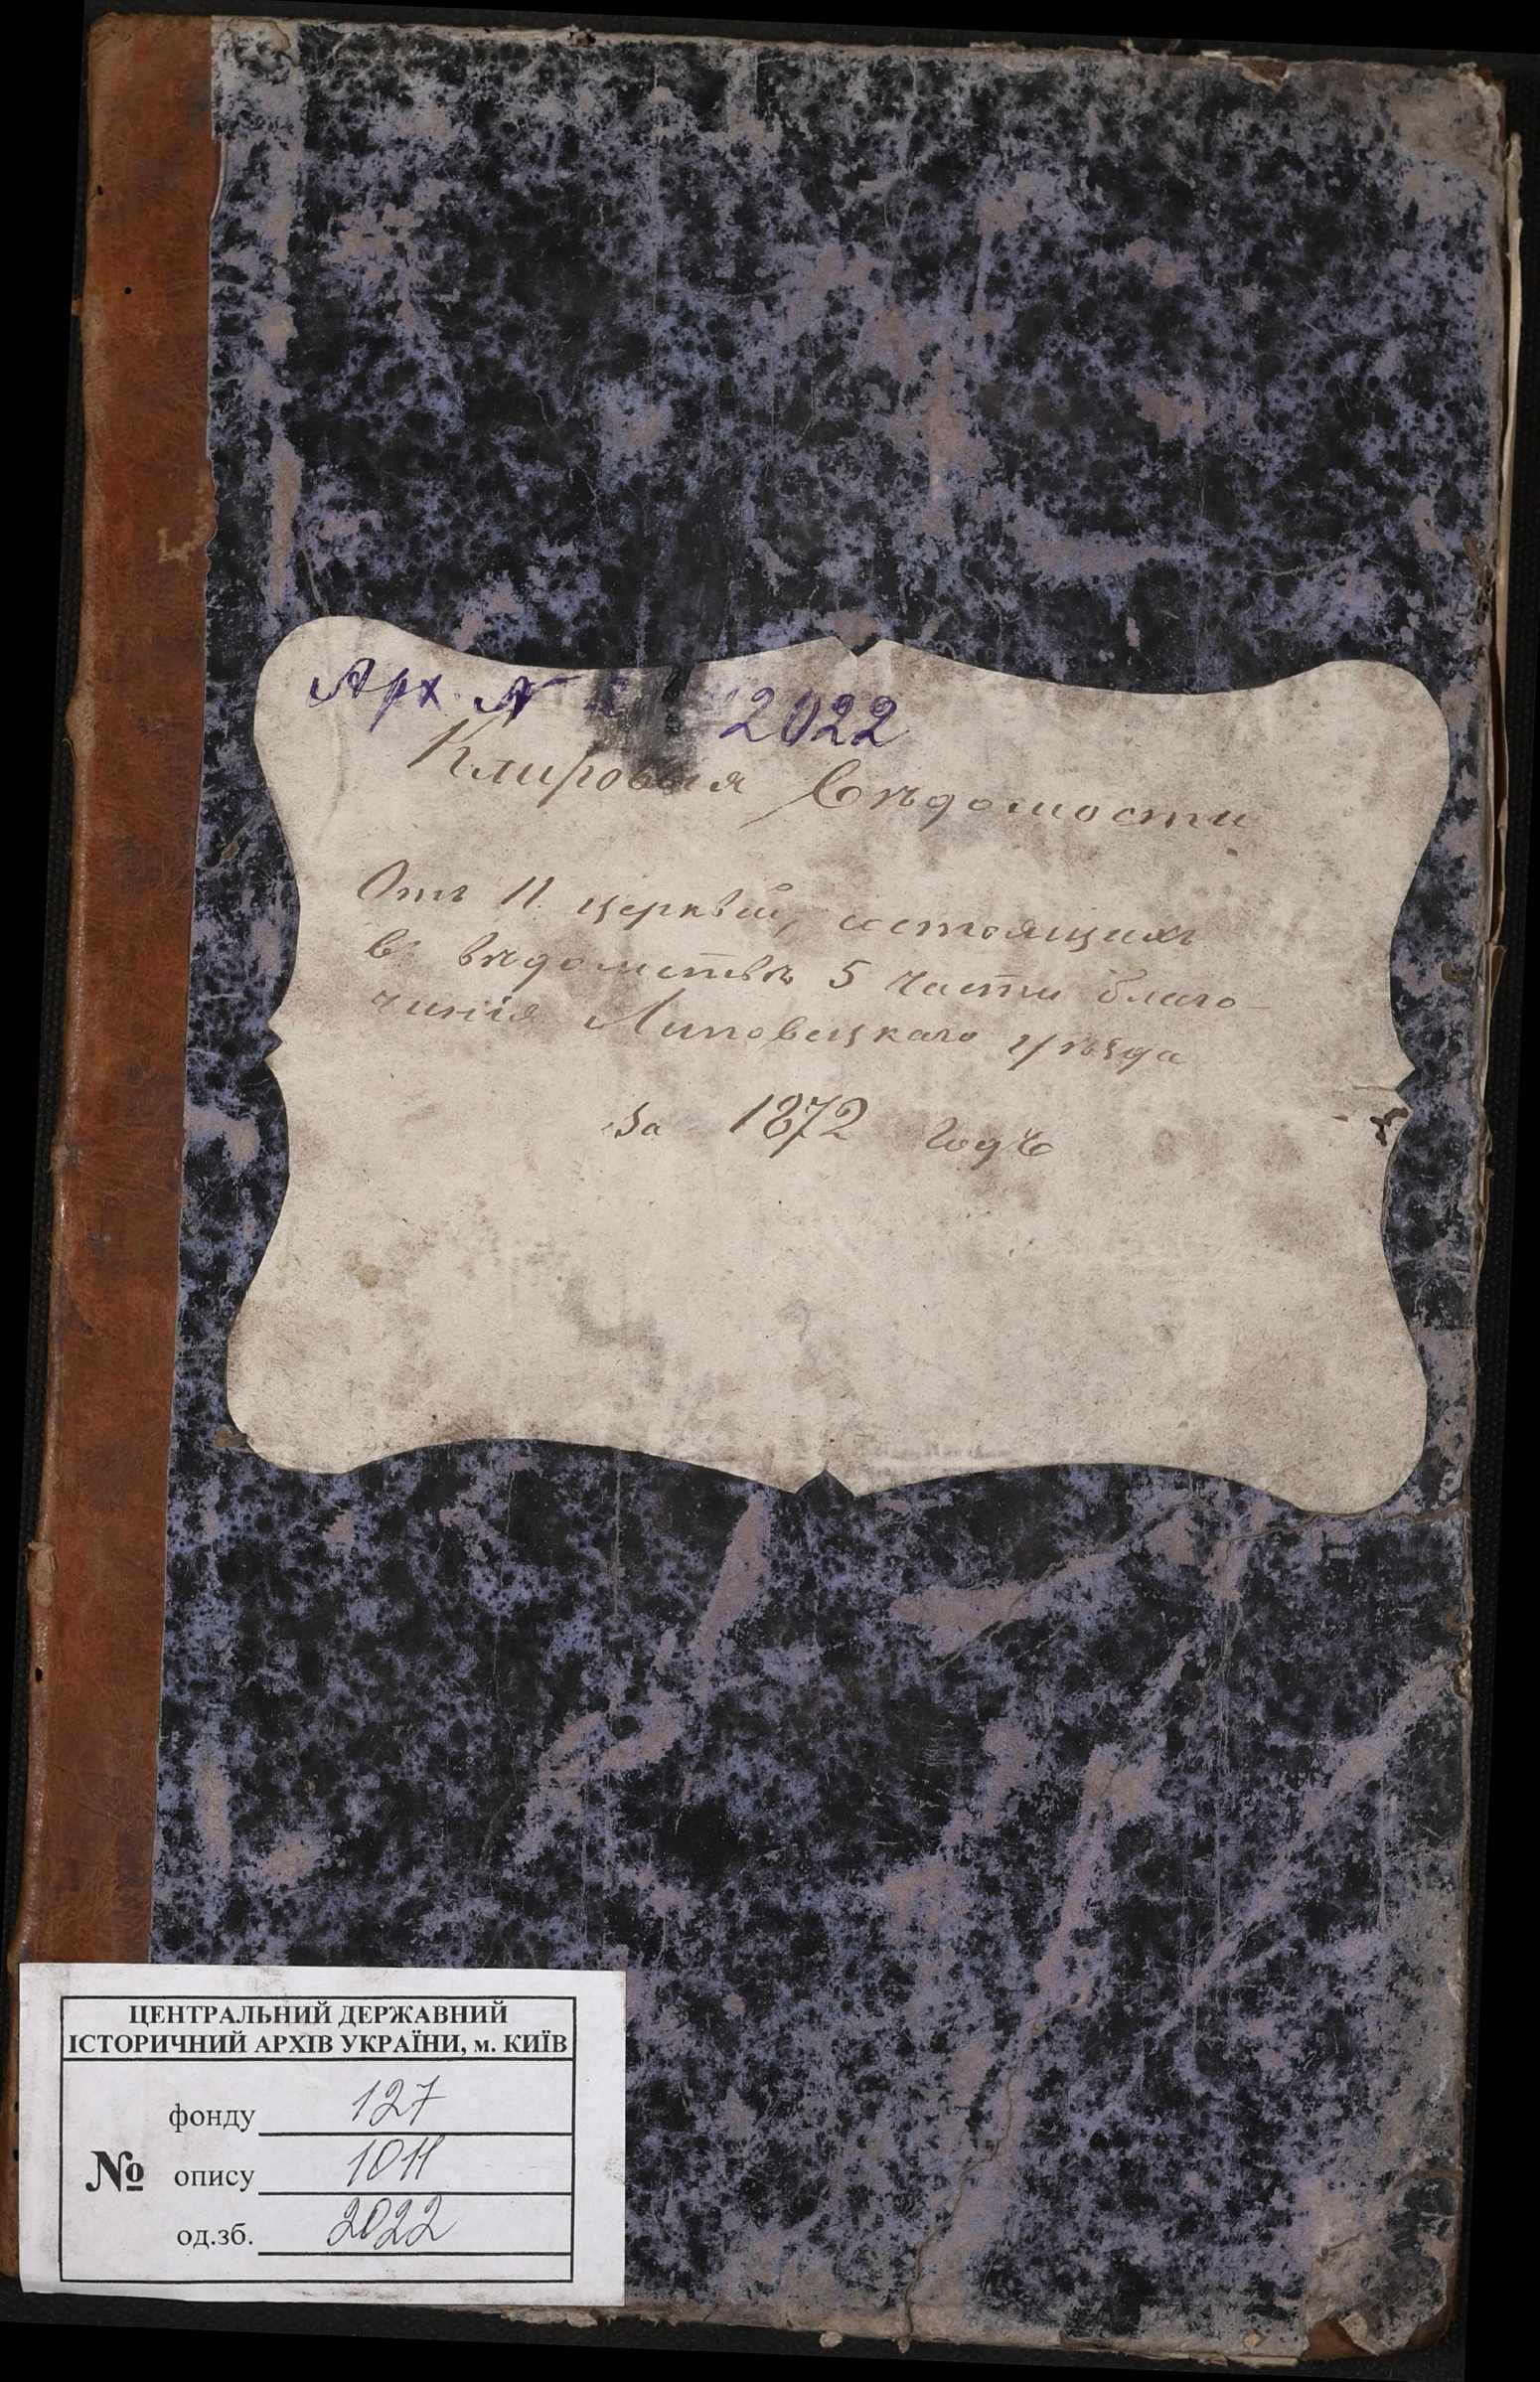 Арх. № 2022
Клировыя Вѣдомости
Отъ 11 церквей, состоящихъ
въ вѣдомствѣ 5 части благо-
чинія Липовецкаго уѣзда
за 1872 годъ
ЦЕНТРАЛЬНИЙ ДЕРЖАВНИЙ
ІСТОРИЧНИЙ АРХІВ УКРАЇНИ, м. КИЇВ
фонду 127
№ опису 1011
од.зб. 2022